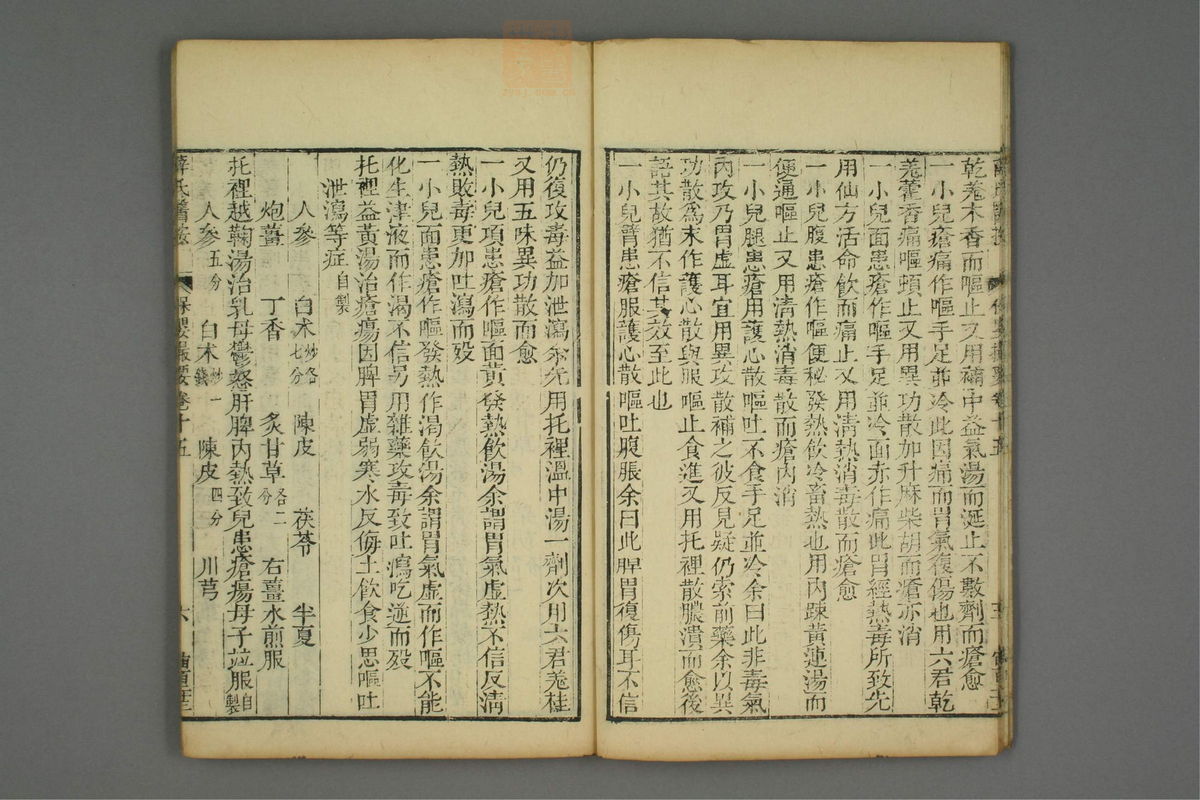 乾姜木香而嘔止又用補中益氣湯而涎止不數劑而瘡愈
一小兒瘡痛作嘔手足並冷此因痛而胃氣復傷也用六君乾
姜藿香痛嘔頓止又用異功散加升麻柴胡而瘡亦消
一小兒面患瘡作嘔手足並冷面赤作痛此胃經熱毒所致先
用仙方活命飲而痛止又用清熱消毒散而瘡愈
一小兒腹患瘡作嘔便秘發熱飲冷畜熱也用內踈黃連湯而
便通嘔止又用清熱消毒散而瘡內消
一小兒腿患瘡用護心散嘔吐不食手足並冷余曰此非毒氣
內攻乃胃虛耳宜用異攻散補之彼反見疑仍索前藥余以異
功散為末作護心散與服嘔止食進又用托裡散膿潰而愈後
語其故猶不信其效至此也
一小兒臂患瘡服護心散嘔吐腹脹余曰此脾胃復傷耳不信
仍復攻毒益加泄瀉余先用托裡溫中湯一劑次用六君姜桂
又用五味異功散而愈
一小兒項患瘡作嘔面黃發熱飲湯余謂胃氣虛熱不信反清
熱敗毒更加吐瀉而歿
一小兒面患瘡作嘔發熱作渴飲湯余謂胃氣虛而作嘔不能
化生津液而作渴不信另用雜藥攻毒致吐瀉吃逆而歿
托裡益黃湯治瘡瘍因脾胃虛弱寒水反侮土飲食少思嘔吐
泄瀉等症自製
人參 白朮炒各七分 陳皮 茯苓 半夏
炮薑 丁香 炙甘草各二分 右薑水煎服
托裡越鞠湯治乳母鬱怒肝脾內熱致兒患瘡瘍母子並服自製
人參五分 白朮炒一錢 陳皮四分 川芎
薛氏醫案 保嬰撮要卷十五 六